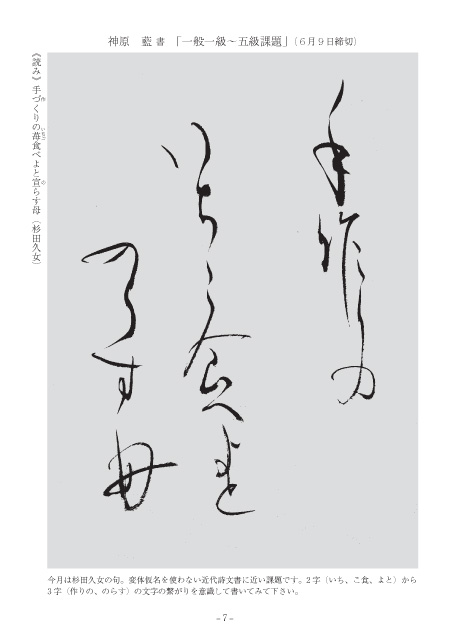 神原　藍 書 「一般一級～五級課題」（６月９日締切）
《読み》手づくりの苺食べよと宣らす母（杉田久女）
手作りの
いちご食べよと
のらす母
今月は杉田久女の句。変体仮名を使わない近代詩文書に近い課題です。2 字（いち、こ食、よと）から
3 字（作りの、のらす）の文字の繋がりを意識して書いてみて下さい。
－7－